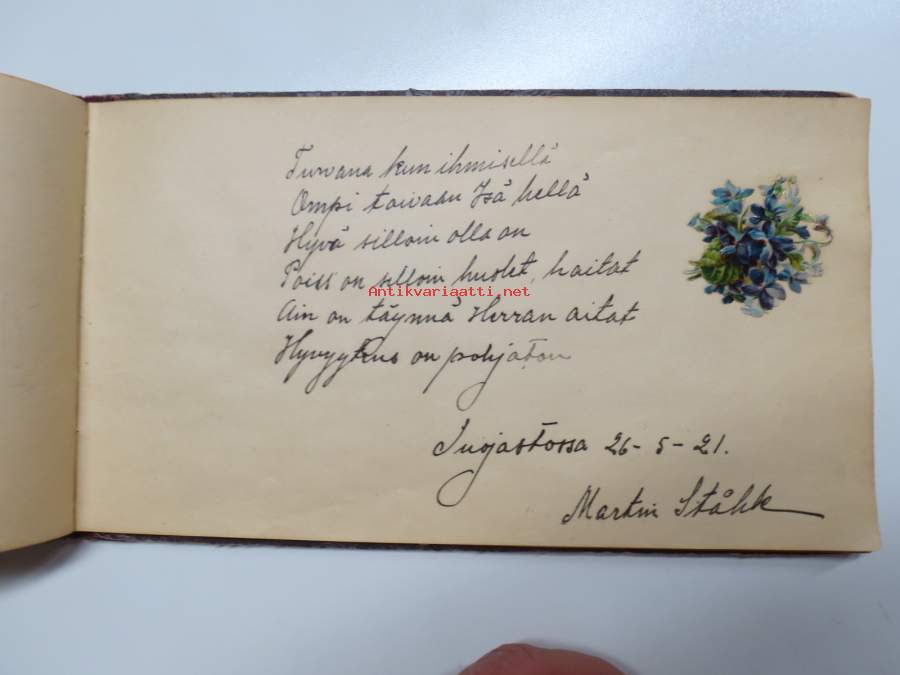 Turvana kun ihmisellä
Ompi taivaan Isä hellä
Hyvä silloin olla on
Poiss on silloin huolet, haitat
Antikvariaatti.net
Ain on täynnä Herran aitat
Hyvyytens on pohjaton
26-5-21.
Martin